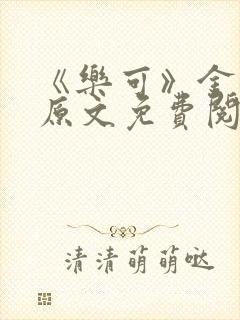 《樂可》全
原文免費閱
清清萌萌噠